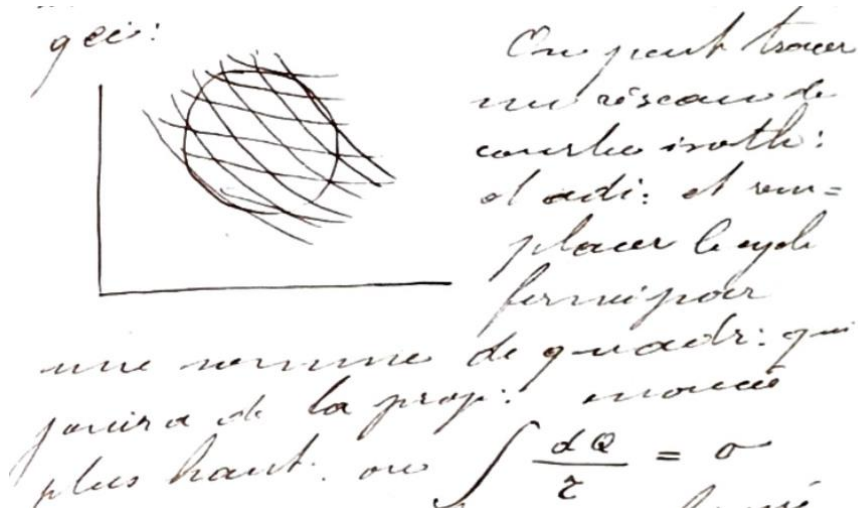 On peut tracer
un réseau de
courbes isoth:
et adi: et rem=
placer le cycle
fermé par
une somme de quadr: qui
jouira de la prop: énoncée
plus haut. ou ∫ dQ/τ = 0